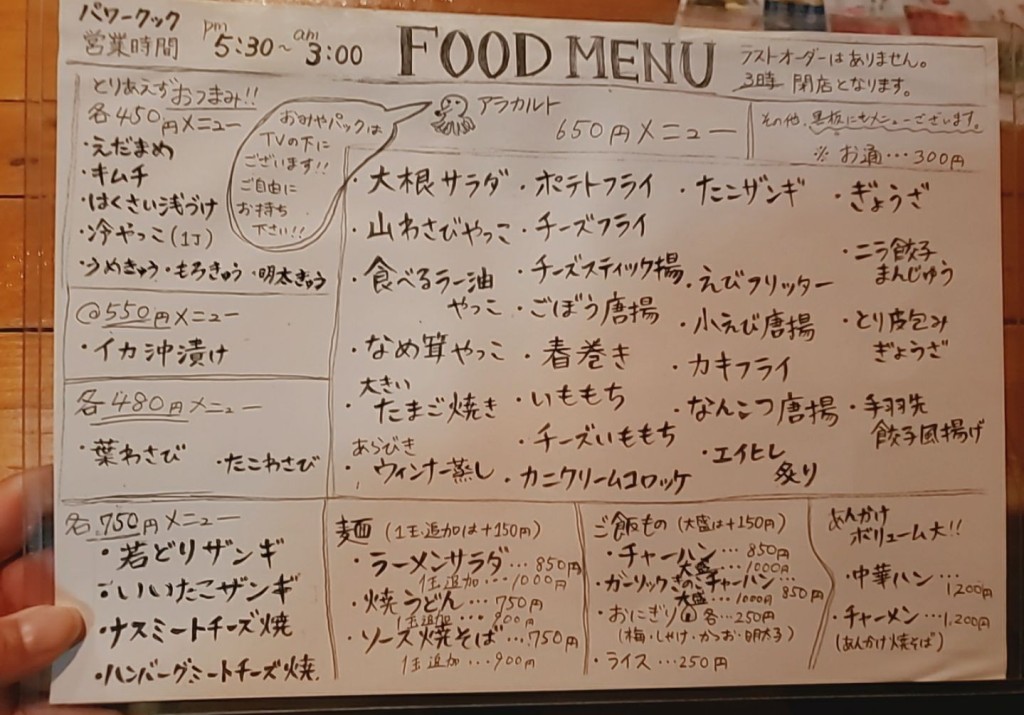 パワークック
営業時間 pm 5:30～am 3:00
FOOD MENU
ラストオーダーはありません。
3時 閉店となります。
とりあえずおつまみ!!
各450円メニュー
・えだまめ
・キムチ
・はくさい浅づけ
・冷やっこ(1丁)
・うめきゅう・もろきゅう・明太きゅう
おみやパックは
TVの下に
ございます!!
ご自由に
お持ち
下さい!!
アラカルト
650円メニュー
その他、黒板にもメニューございます。
※お通…300円
・大根サラダ
・山わさびやっこ
・食べるラー油
やっこ
・なめ茸やっこ
大きい
・たまご焼き
あらびき
・ウィンナー蒸し
・ポテトフライ
・チーズフライ
・チーズスティック揚
・ごぼう唐揚
・春巻き
・いももち
・チーズいももち
・カニクリームコロッケ
・たこザンギ
・えびフリッター
・小えび唐揚
・カキフライ
・なんこつ唐揚
・エイヒレ
炙り
・ぎょうざ
・ニラ餃子
まんじゅう
・とり皮包み
ぎょうざ
・手羽先
餃子風揚げ
@550円メニュー
・イカ沖漬け
各480円メニュー
・葉わさび ・たこわさび
各750円メニュー
・若どりザンギ
・いいたこザンギ
・ナスミートチーズ焼
・ハンバーグミートチーズ焼
麺 (1玉追加は+150円)
・ラーメンサラダ…850円
1玉追加…1000円
・焼うどん…750円
1玉追加…900円
・ソース焼そば…750円
1玉追加…900円
ご飯もの (大盛は+150円)
・チャーハン…850円
大盛…1000円
・ガーリックきのこチャーハン…850円
大盛…1000円
・おにぎり 各…250円
(梅・しゃけ・かつお・明太子)
・ライス…250円
あんかけ
ボリューム大!!
・中華ハン…1200円
・チャーメン…1,200円
(あんかけ焼そば)